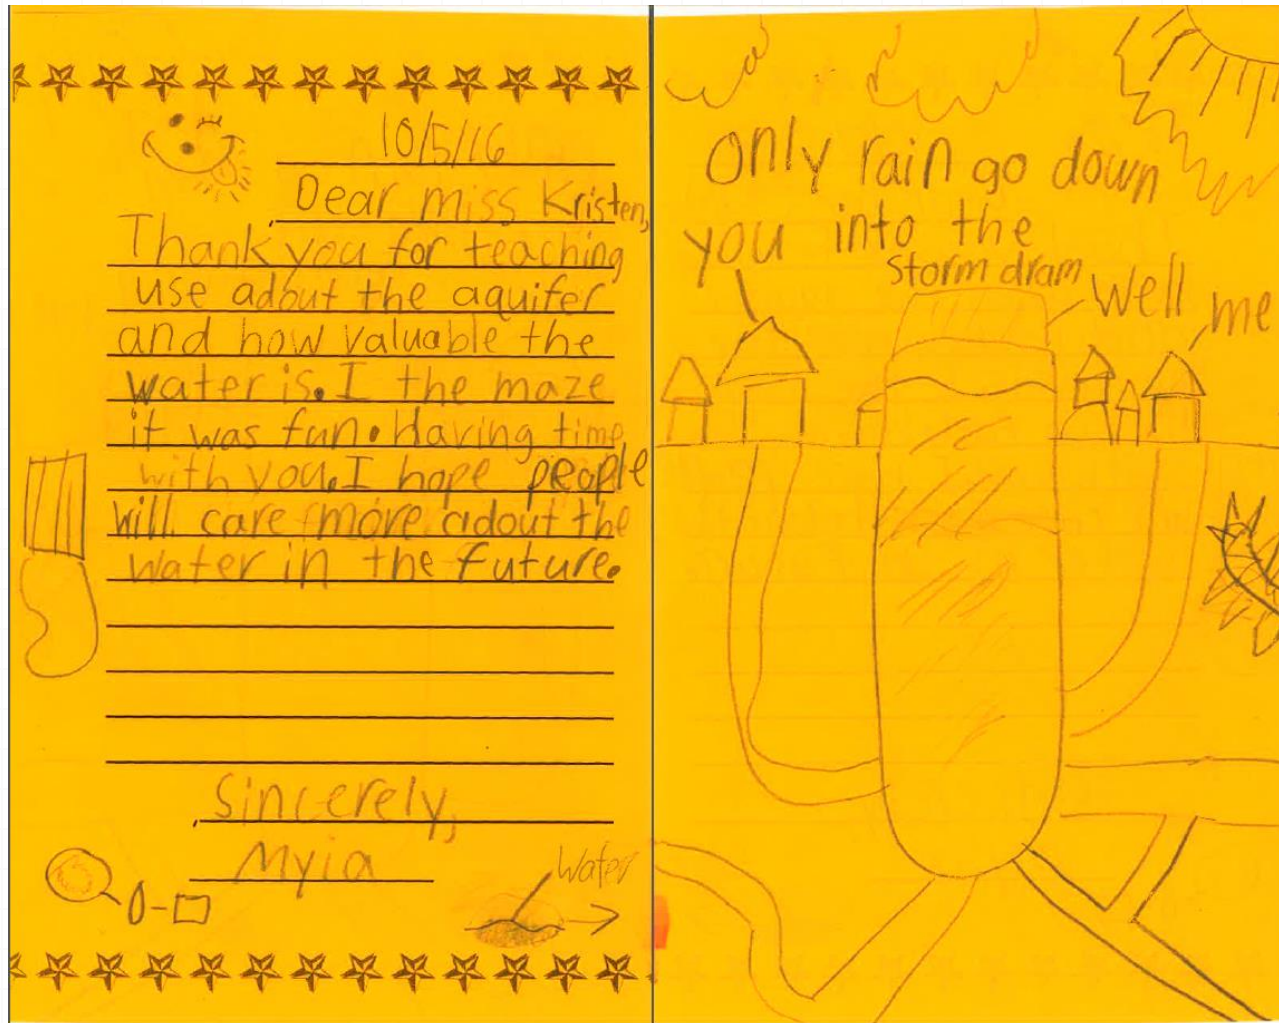 10/5/16
Dear miss Kristen,
Thank you for teaching
use adout the aquifer
and how valuable the
water is. I the maze
it was fun. Having time
with you. I hope people
will care more adout the
water in the future.
Sincerely,
Myia
Water
Only rain go down
you into the
storm dram
well
me